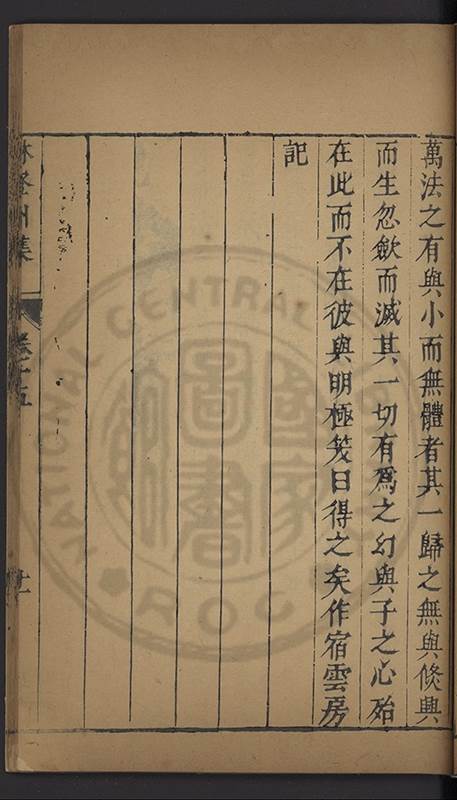 萬法之有與小而無體者其一歸之無與倏興
而生忽歛而滅其一切有爲之幻與子之心殆
在此而不在彼與明極笑曰得之矣作宿雲房
記
林登州集
卷十五
十一